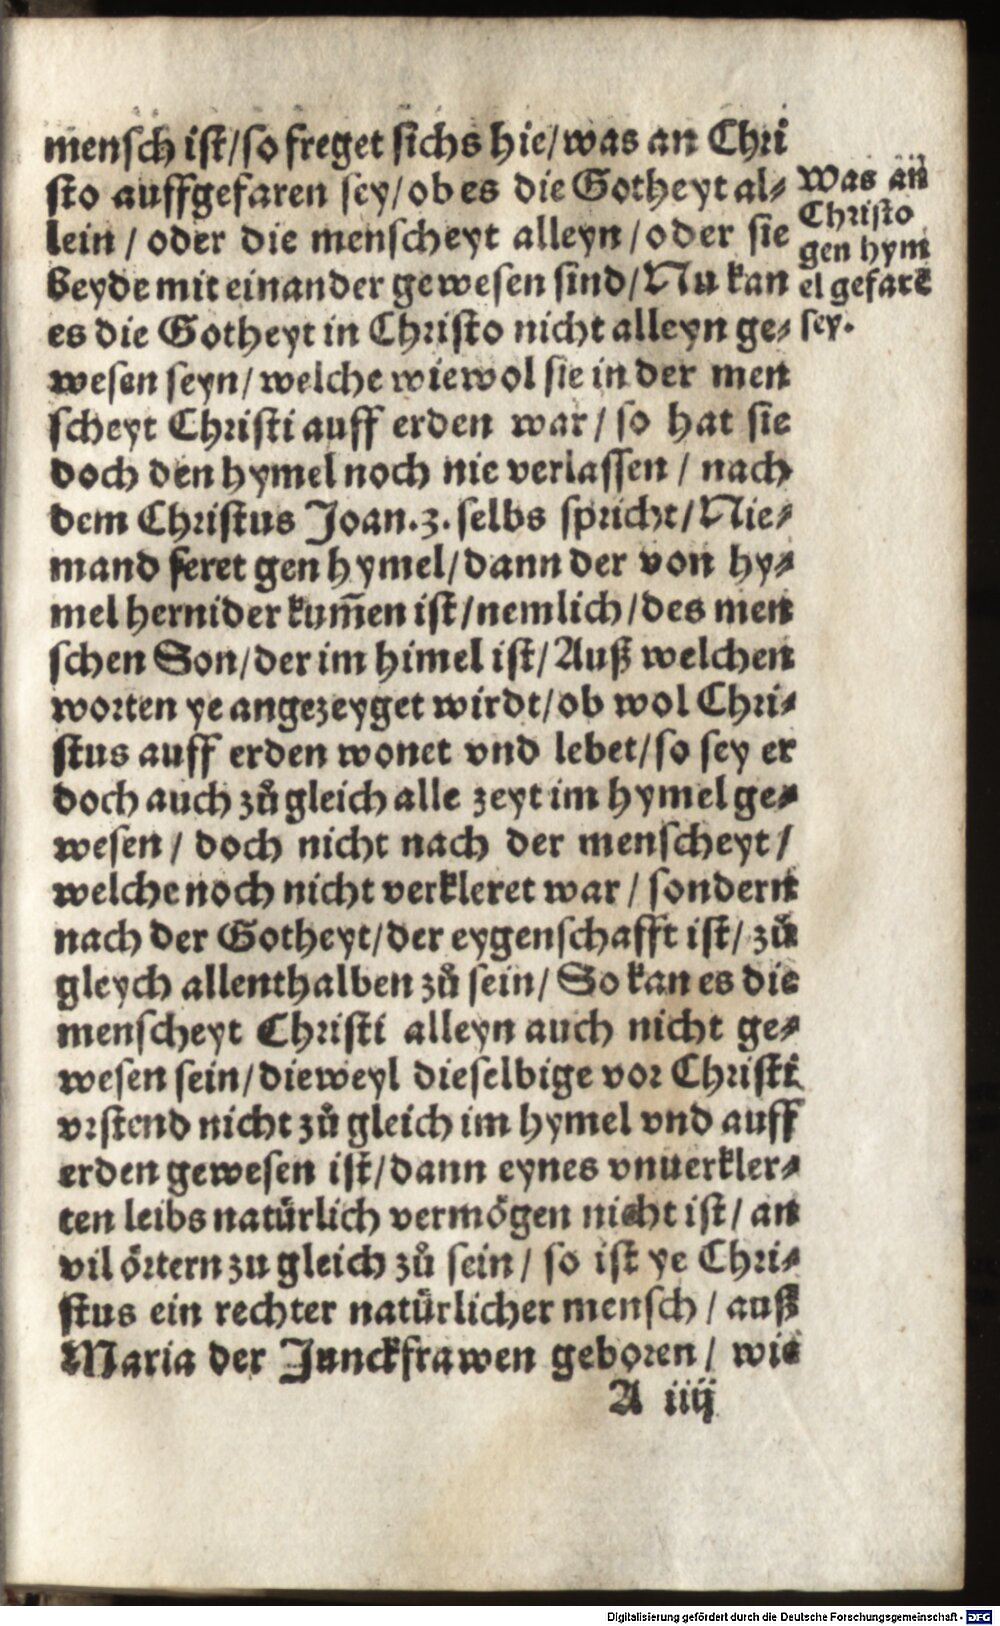 mensch ist/so freget sichs hie/was an Chri
sto auffgefaren sey/ob es die Gotheyt al⸗
lein / oder die menscheyt alleyn/oder sie
beyde mit einander gewesen sind/Nu kan
es die Gotheyt in Christo nicht alleyn ge⸗
wesen seyn/welche wiewol sie in der men
scheyt Christi auff erden war/so hat sie
doch den hymel noch nie verlassen / nach
dem Christus Joan.3. selbs spricht/Nie⸗
mand feret gen hymel/dann der von hy⸗
mel hernider kum̃en ist/nemlich/des men
schen Son/der im himel ist/Auß welchen
worten ye angezeyget wirdt/ob wol Chri⸗
stus auff erden wonet vnd lebet/so sey er
doch auch zů gleich alle zeyt im hymel ge⸗
wesen / doch nicht nach der menscheyt/
welche noch nicht verkleret war/sondern
nach der Gotheyt/der eygenschafft ist/zů
gleych allenthalben zů sein/So kan es die
menscheyt Christi alleyn auch nicht ge⸗
wesen sein/dieweyl dieselbige vor Christi
vrstend nicht zů gleich im hymel vnd auff
erden gewesen ist/dann eynes vnuerkler⸗
ten leibs natürlich vermögen nicht ist/an
vil örtern zu gleich zů sein/so ist ye Chri⸗
stus ein rechter natürlicher mensch/auß
Maria der Junckfrawen geboren/wie
A iiij
Was an
Christo
gen hym
el gefarē
sey.
Digitalisierung gefördert durch die Deutsche Forschungsgemeinschaft - DFG